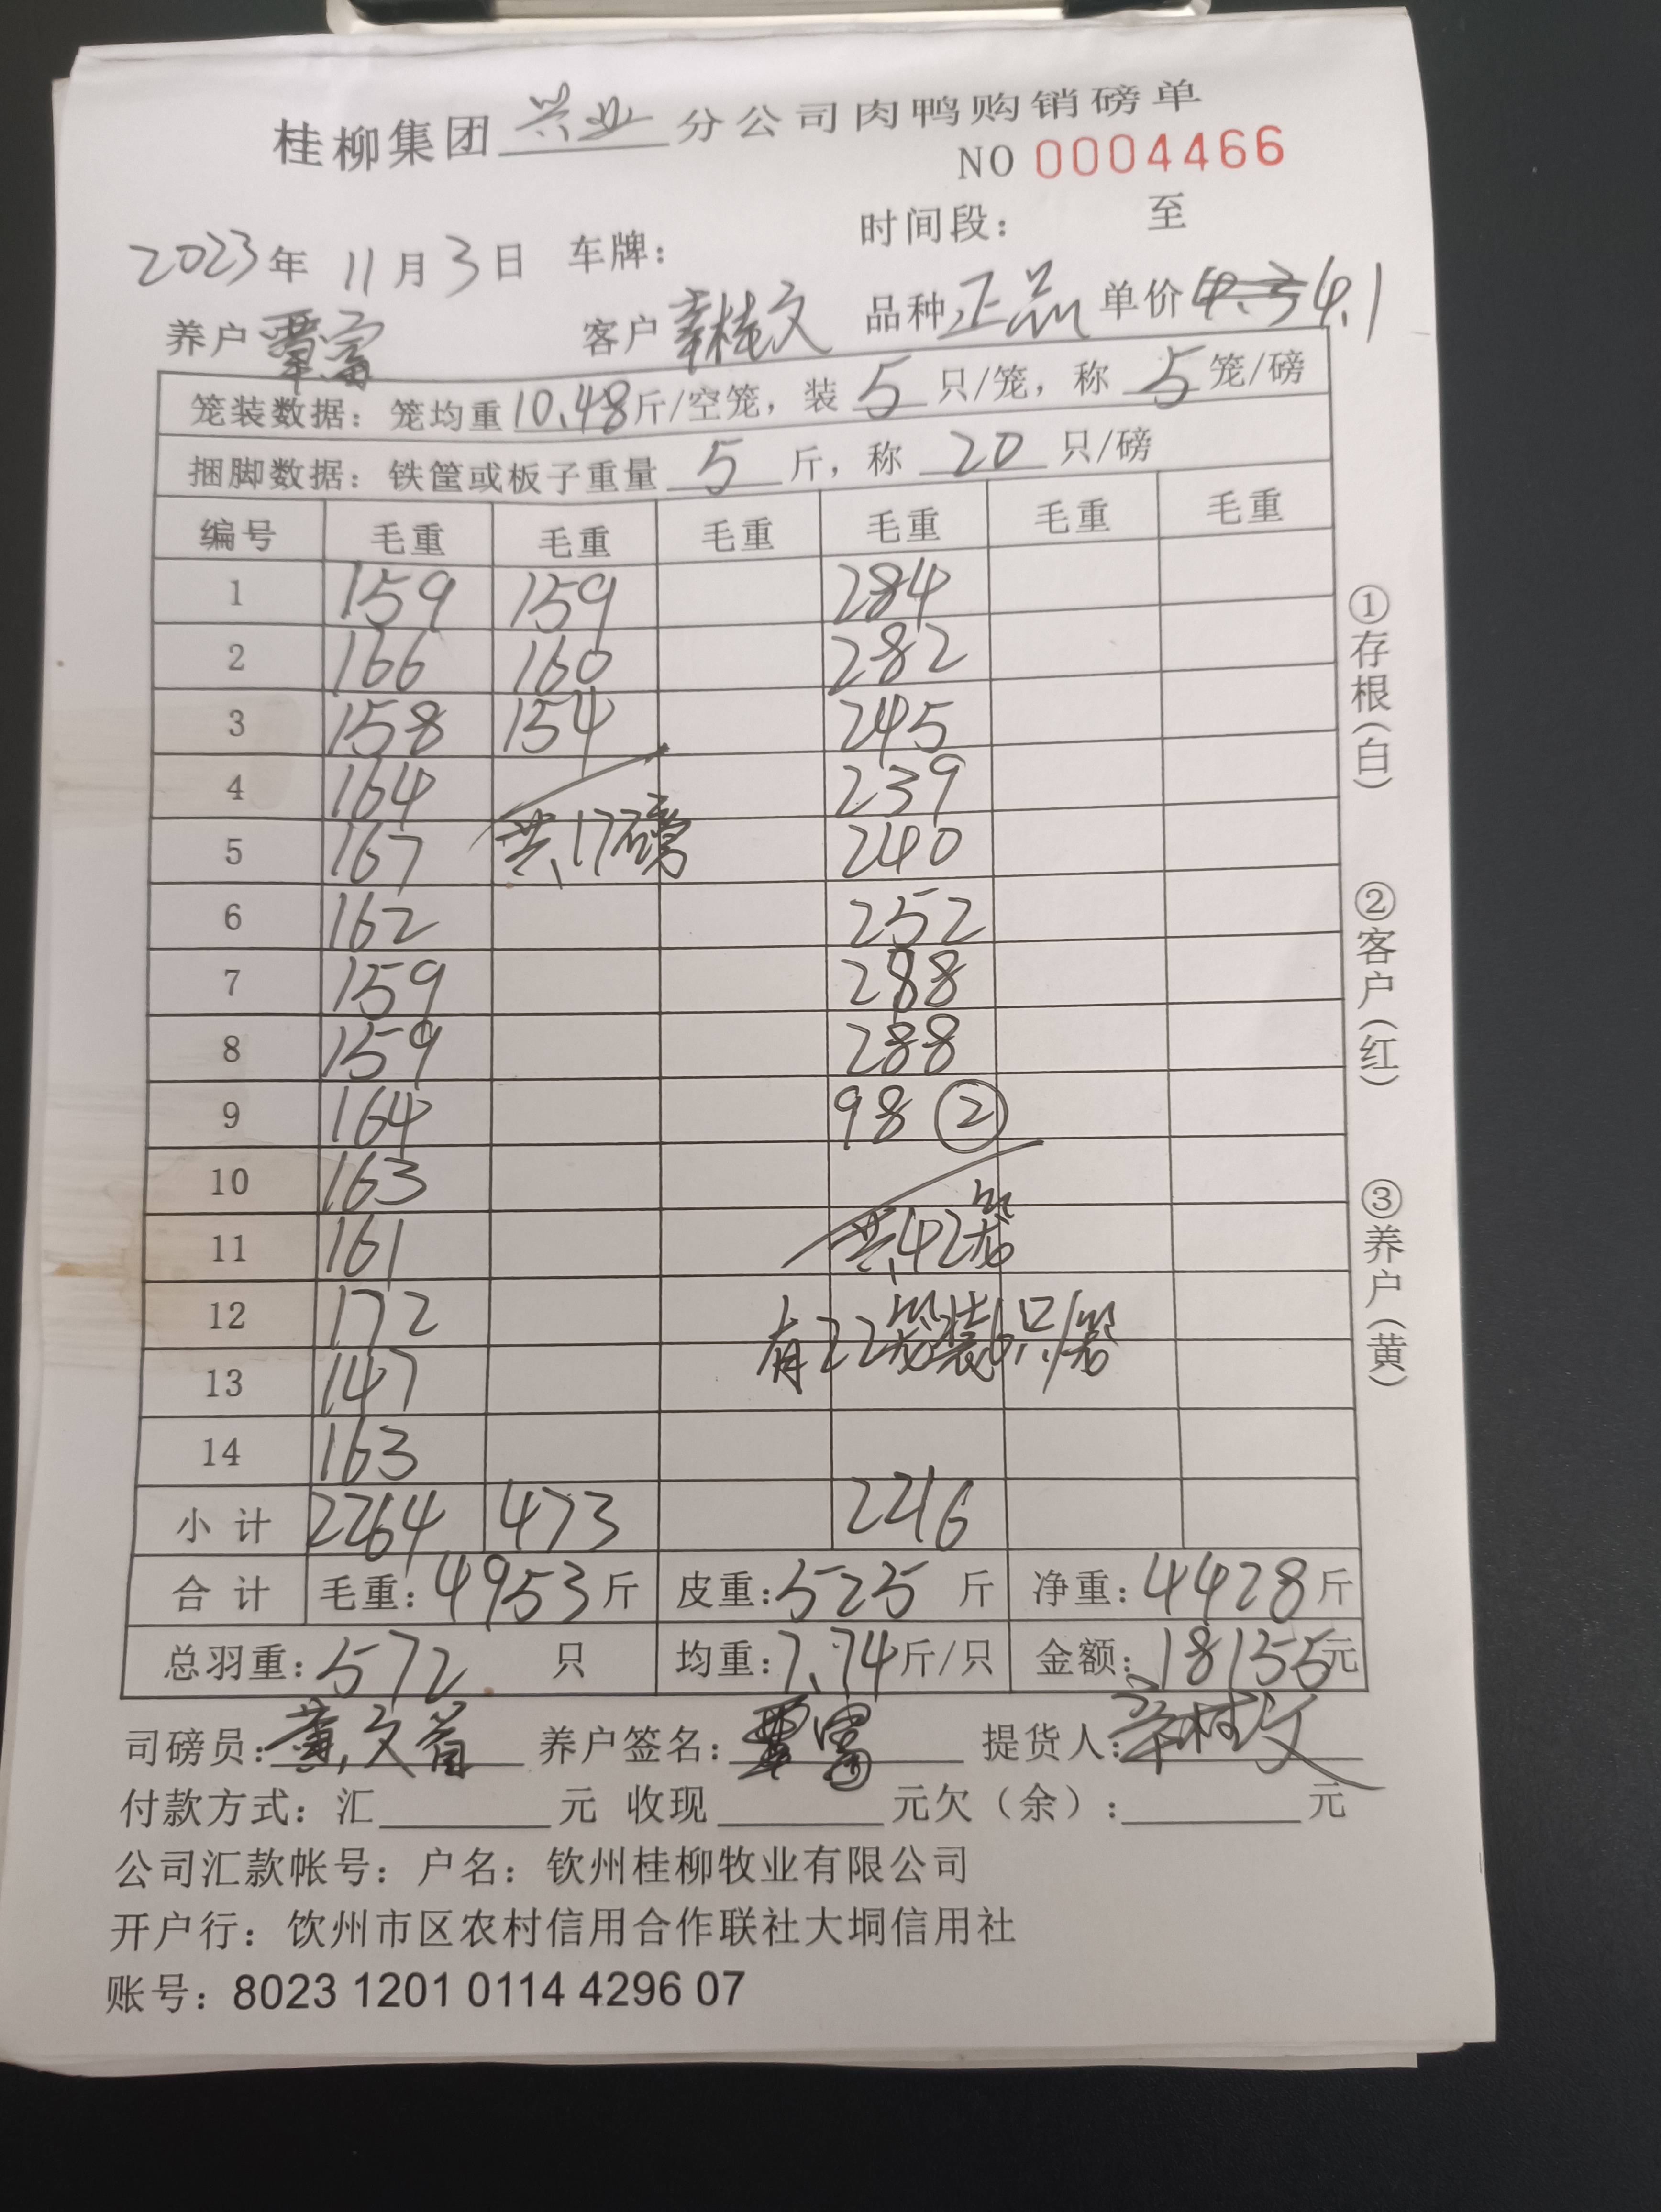 桂柳集团兴业分公司肉鸭购销磅单
NO 0004466
时间段： 至
2023年11月3日 车牌：
养户覃富 客户辛桂文 品种正品 单价4.3 4.1
笼装数据：笼均重10.48斤/空笼，装5只/笼，称5笼/磅
捆脚数据：铁筐或板子重量5斤，称20只/磅
编号 毛重 毛重 毛重 毛重 毛重 毛重
1 159 159 284
2 166 160 282
3 158 154 245
4 164 239
5 167 共17磅 240
6 162 252
7 159 288
8 159 288
9 164 98 ②
10 163
11 161 共42笼
12 172 有22笼装6只/笼
13 147
14 163
小计 2264 473 2216
合计 毛重：4953斤 皮重：525斤 净重：4428斤
总羽重：572只 均重：7.74斤/只 金额：18155元
司磅员： 养户签名：覃富 提货人：辛桂文
付款方式：汇 元 收现 元欠（余）： 元
公司汇款帐号：户名：钦州桂柳牧业有限公司
开户行：饮州市区农村信用合作联社大垌信用社
账号：8023 1201 0114 4296 07
①存根（白）
②客户（红）
③养户（黄）